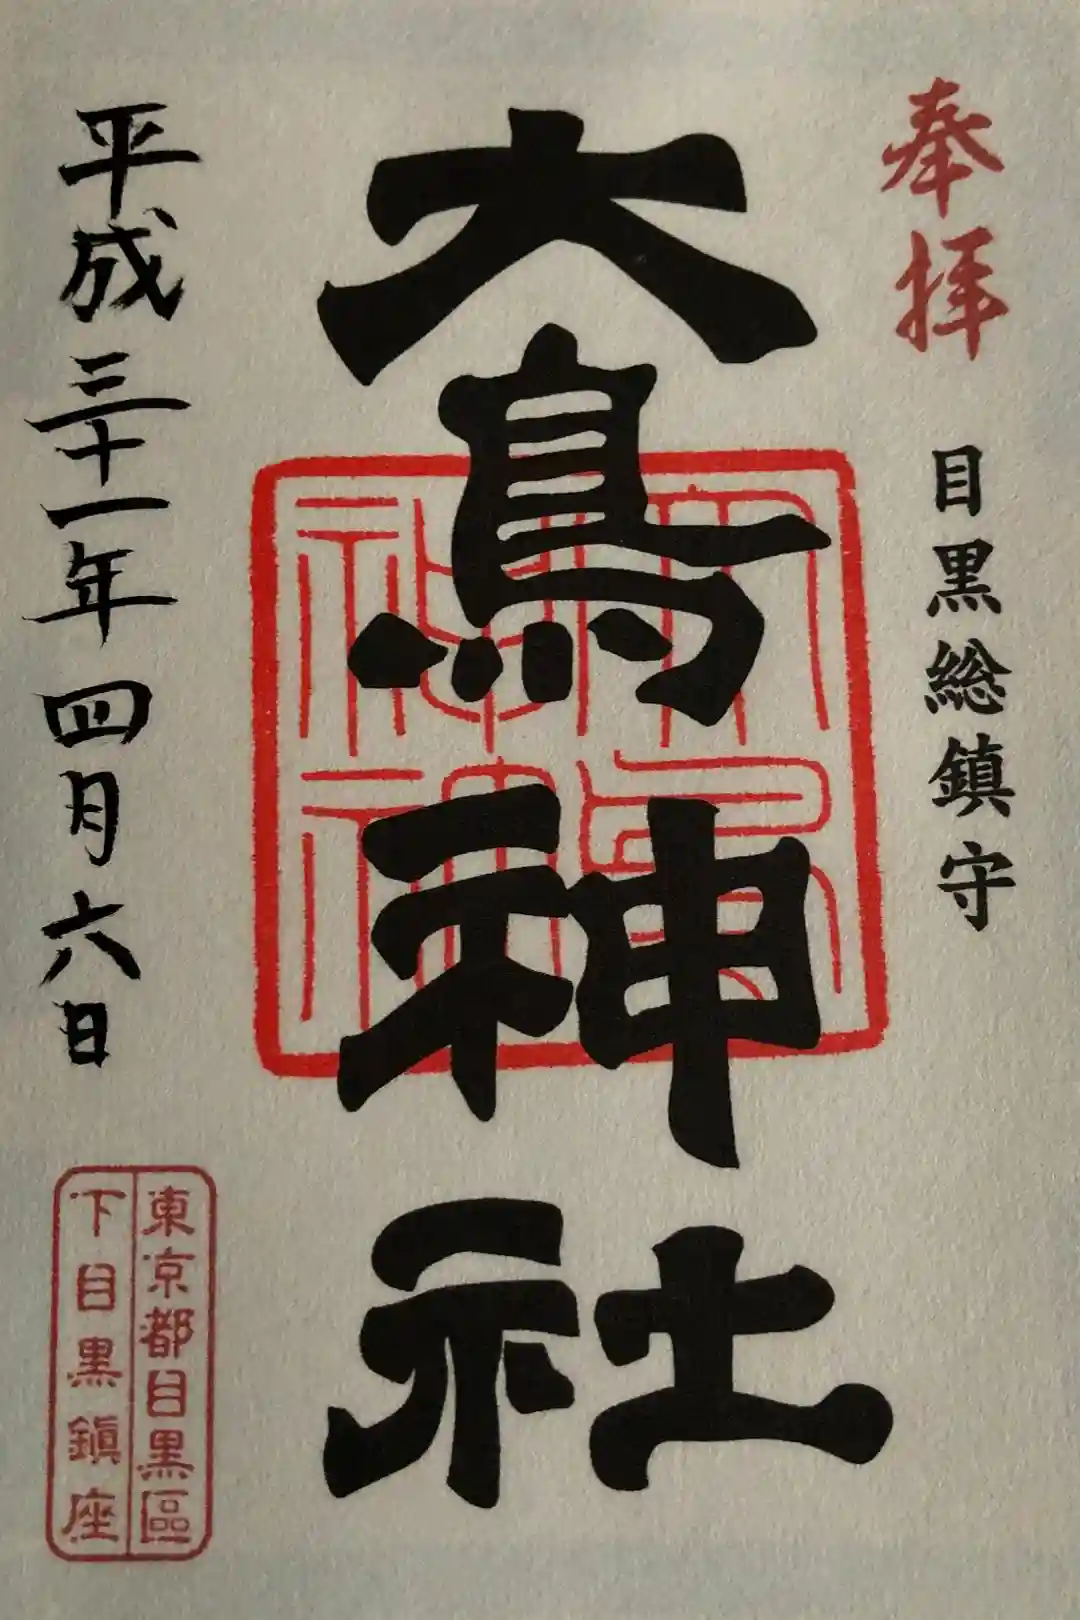 奉拝
目黒総鎮守
大鳥神社
平成三十一年四月六日
東京都目黒區
下目黒鎭座